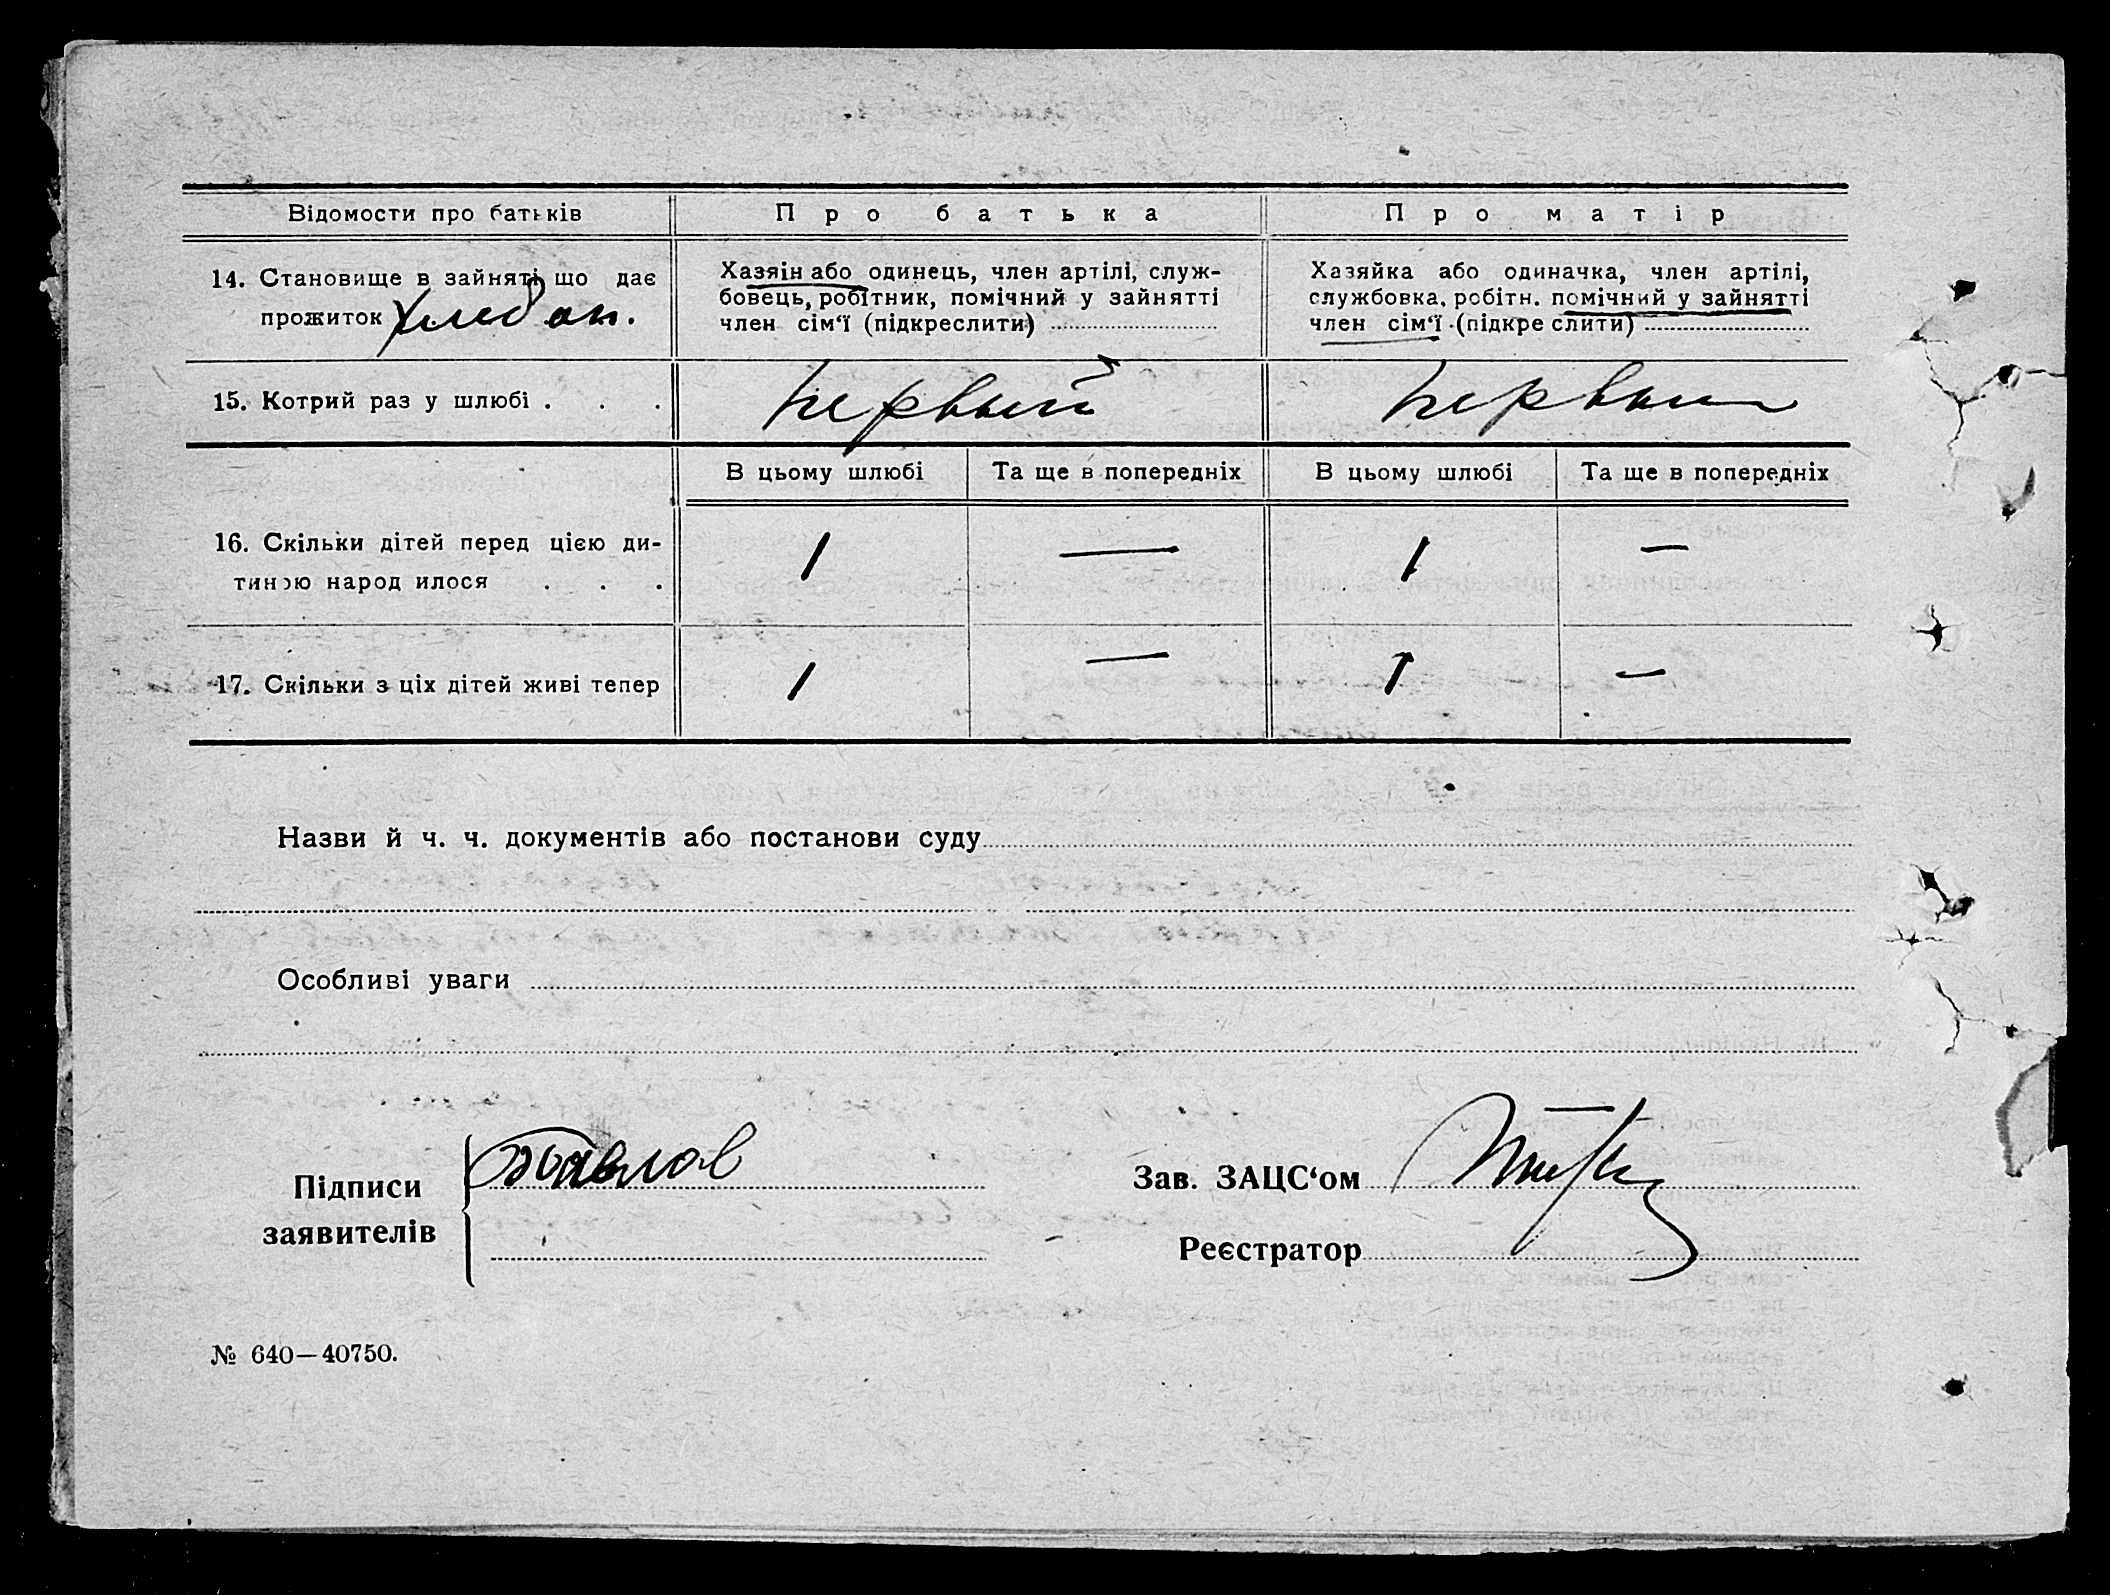 Відомости про батьків
Про батька
Про матір
14. Становище в зайняті що дає
прожиток
Хазяїн або одинець, член артілі, служ-
бовець, робітник, помічний у зайнятті
член сім‘ї (підкреслити)
Хазяйка або одиначка, член артілі,
службовка, робітн. помічний у зайнятті
член сім‘ї (підкреслити)
15. Котрий раз у шлюбі . . .
первый
первый
В цьому шлюбі
Та ще в попередніх
В цьому шлюбі
Та ще в попередніх
16. Скільки дітей перед цією ди-
тиною народилося . . .
1 — 1 —
17. Скільки з ціх дітей живі тепер
1 — 1 —
Назви й ч. ч. документів або постанови суду
Особливі уваги
Підписи
заявителів
Павлов
Зав. ЗАЦС‘ом
Реєстратор
№ 640—40750.